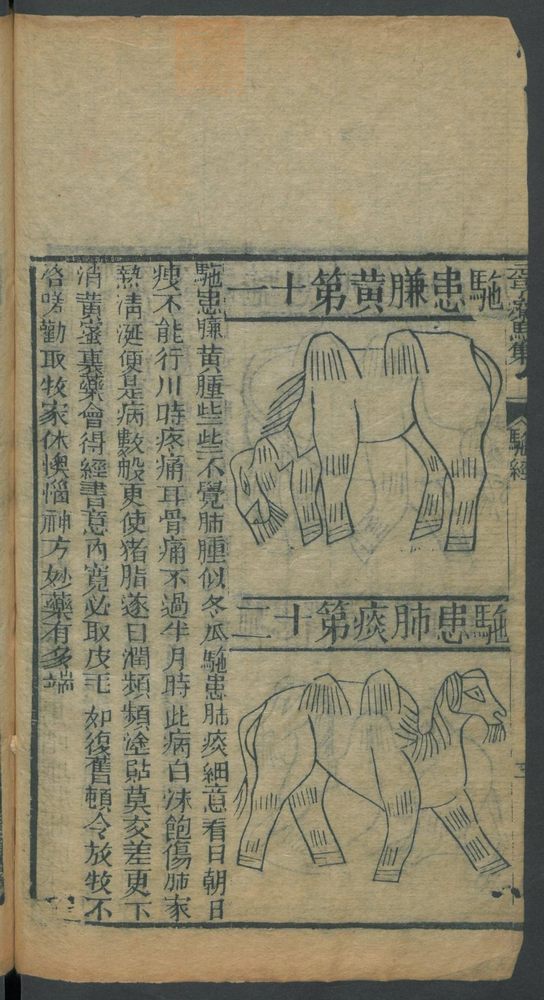 駞患膁黄第十一
駞患肺痰第十二
駞患膁黄腫些些不覺肺腫似冬瓜駞患肺痰細意看日朝日
瘦不能行川時疼痛耳骨痛不過半月時此病白沫飽傷肺家
熱清涎便是病數般更使猪脂逐日潤頻頻塗貼莫交差更下
消黄蜜裏藥會得經書意內寬必取皮毛如復舊頓令放牧不
咨嗟勸取牧家休懊惱神方妙藥有多端
駞經